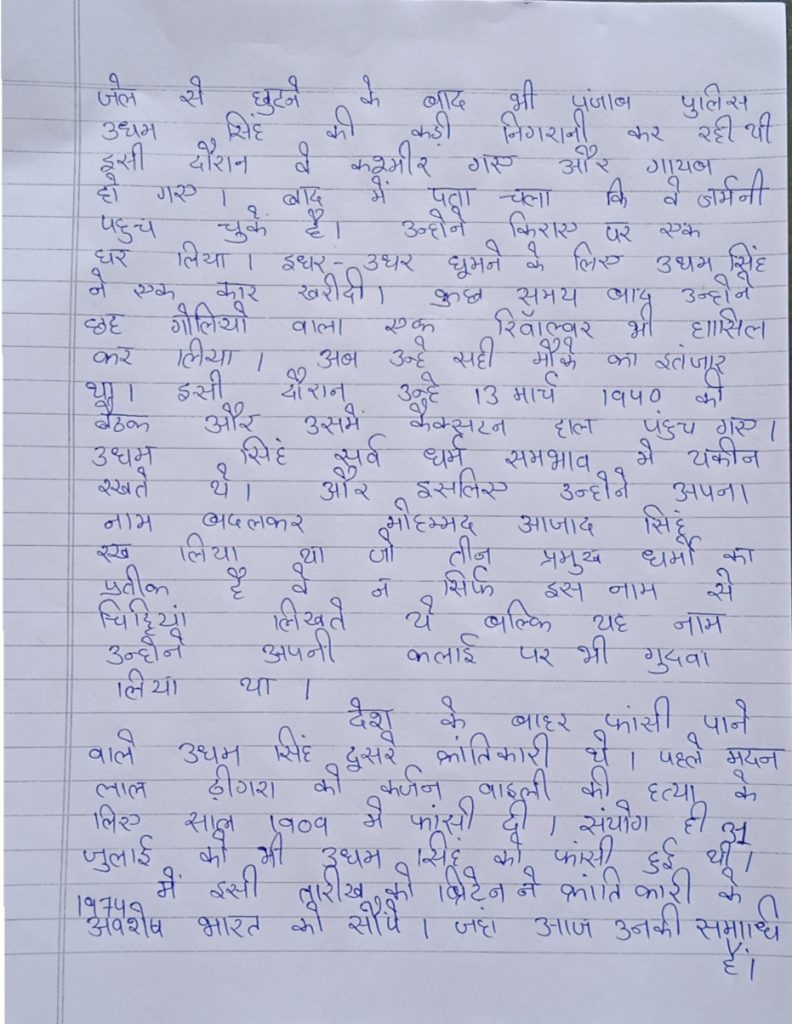 जेल से छुटने के बाद भी पंजाब पुलिस
उधम सिंह की कड़ी निगरानी कर रही थी
इसी दौरान वे कश्मीर गए और गायब
हो गए । बाद में पता चला कि वे जर्मनी
पहुच चुके है। उन्होने किराए पर एक
घर लिया । इधर-उधर घूमने के लिए उधम सिंह
ने एक कार खरीदी। कुछ समय बाद उन्होने
छह गोलियो वाला एक रिवॉल्वर भी हासिल
कर लिया । अब उन्हे सही मौके का इतंजार
था। इसी दौरान उन्हे 13 मार्च १९५० की
बैठक और उसमें कैक्सटन हाल पंहुच गए।
उधम सिहं सर्व धर्म समभाव मे यकीन
रखते थे। और इसलिए उन्होने अपना
नाम बदलकर मोहम्मद आजाद सिंह
रख लिया था जो तीन प्रमुख धर्मो का
प्रतीक है वे न सिर्फ इस नाम से
चिट्ठियां लिखते थे बल्कि यह नाम
उन्होने अपनी कलाई पर भी गुदवा
लिया था ।
देश के बाहर फांसी पाने
वाले उधम सिंह दूसरे क्रांतिकारी थे । पहले मदन
लाल ढ़ीगरा को कर्जन वाइली की हत्या के
लिए साल १९०९ मे फांसी दी । संयोग ही ३१
जुलाई को भी उधम सिंह को फांसी हुई थी।
१९७४ में इसी तारीख को ब्रिटेन ने क्रांतिकारी के
अवशेष भारत को सौंपे । जहा आज उनकी समाधि
है।